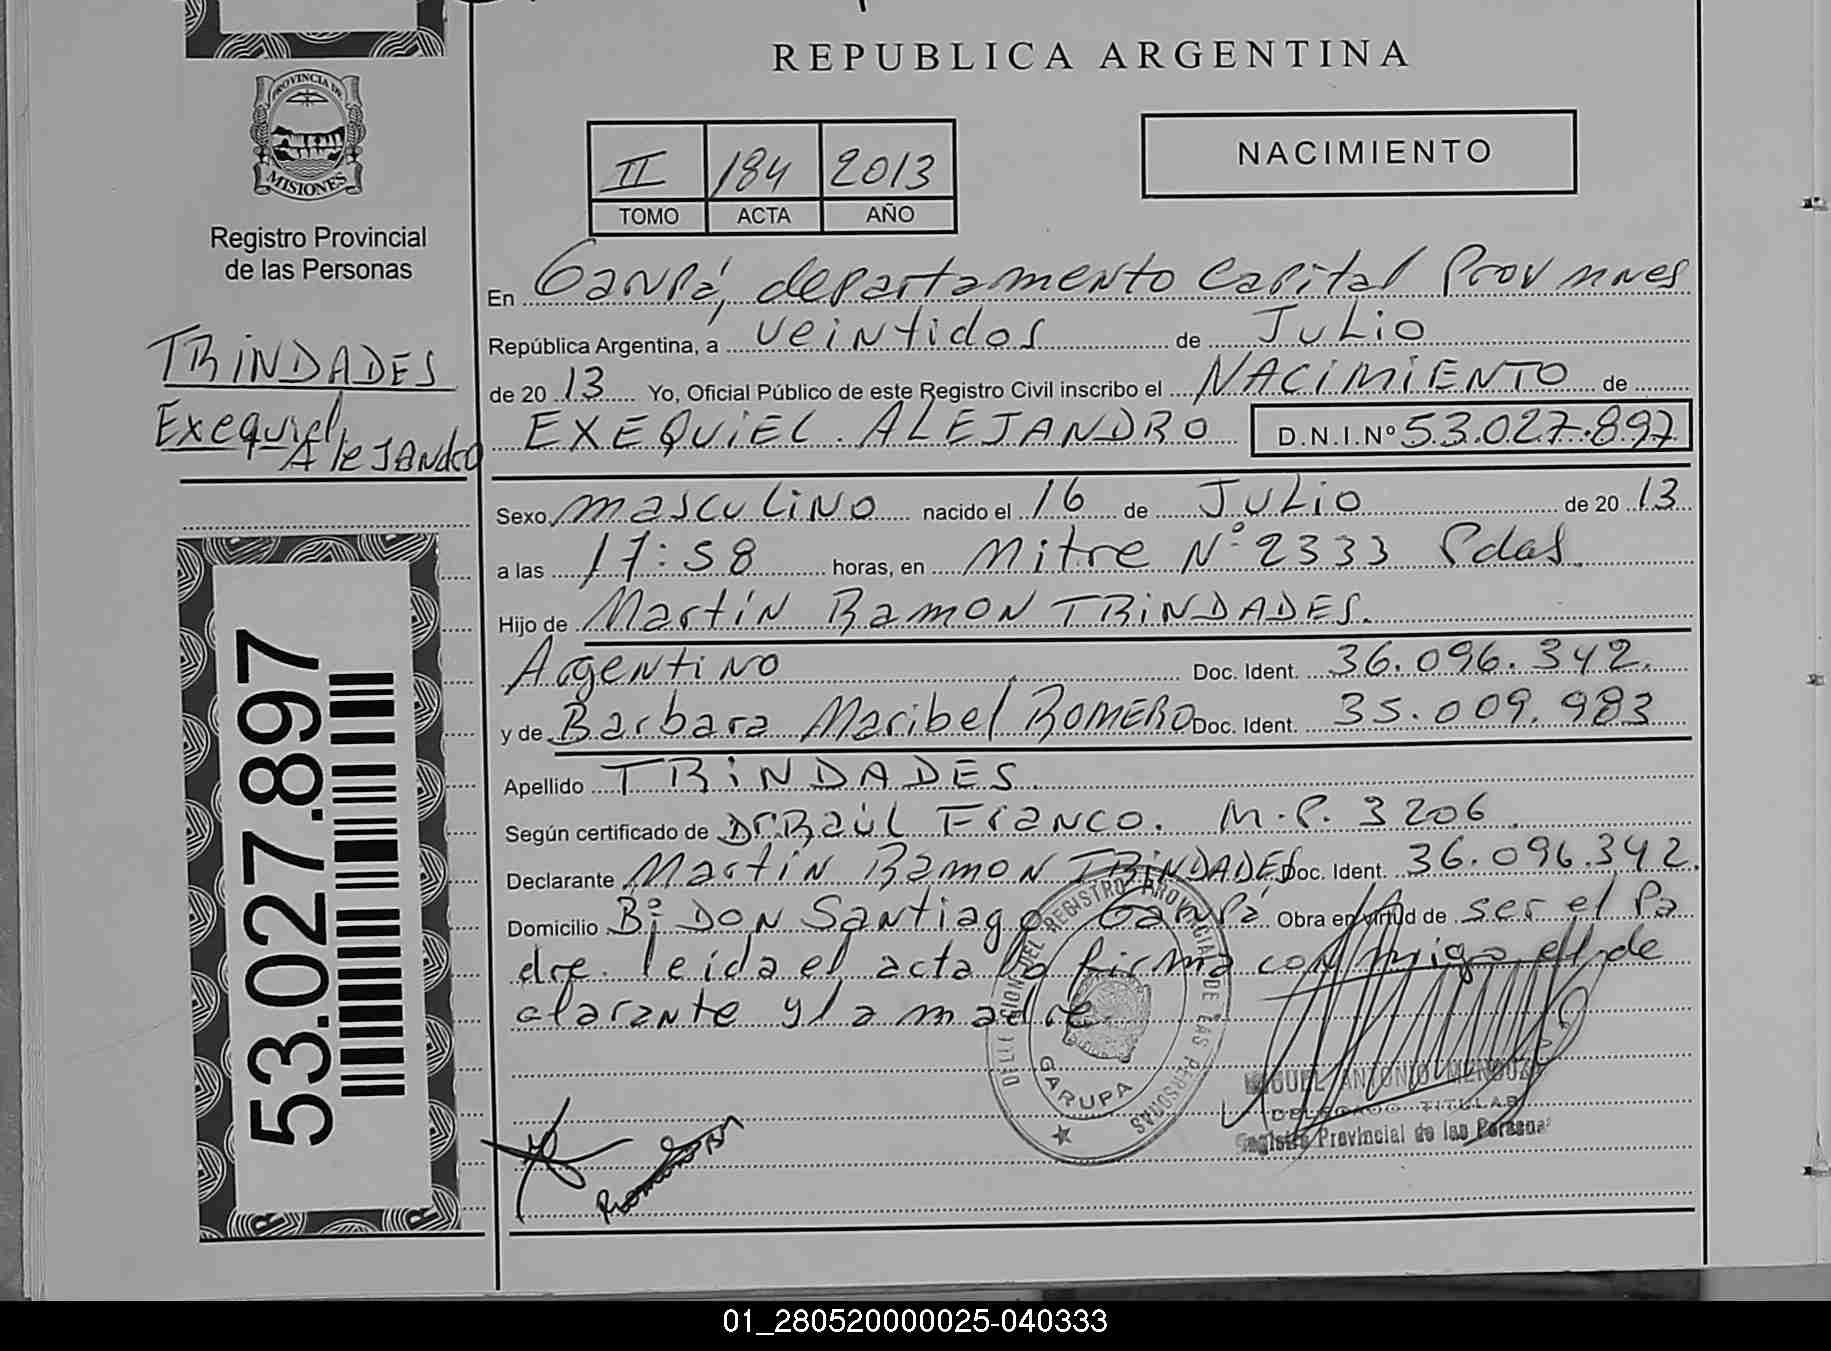 REPUBLICA ARGENTINA
PROVINCIA DE
MISIONES
Registro Provincial
de las Personas
TRINDADES
Exequiel
Alejandro
53.027.897
II 184 2013
TOMO ACTA AÑO
NACIMIENTO
En Garupá, departamento Capital Prov Mnes
República Argentina, a veintidos de Julio
de 20 13 Yo, Oficial Público de este Registro Civil inscribo el NACIMIENTO de
EXEQUIEL ALEJANDRO D.N.I.Nº 53.027.897
Sexo masculino nacido el 16 de Julio de 20 13
a las 17:58 horas, en Mitre Nº 2333 Pdas.
Hijo de Martín Ramon TRINDADES.
Argentino Doc. Ident. 36.096.342.
y de Barbara Maribel ROMERO Doc. Ident. 35.009.983
Apellido TRINDADES.
Según certificado de Dr Raúl Franco. M.P. 3206.
Declarante Martin Ramon TRINDADES Doc. Ident. 36.096.342.
Domicilio Bº DON Santiago Garupá Obra en virtud de ser el Pa
dre. leida el acta la firma conmigo el de
clarante y la madre
REGISTRO PROVINCIAL DE LAS PERSONAS
GARUPA
MIGUEL ANTONIO MENDOZA
DELEGADO TITULAR
Registro Provincial de las Personas
01_280520000025-040333